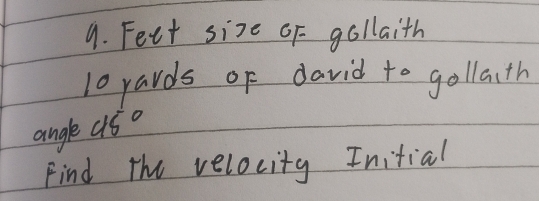 9. Feet size of gollaith
10 yards of david to gollaith
angle 45°
Find The velocity Initial